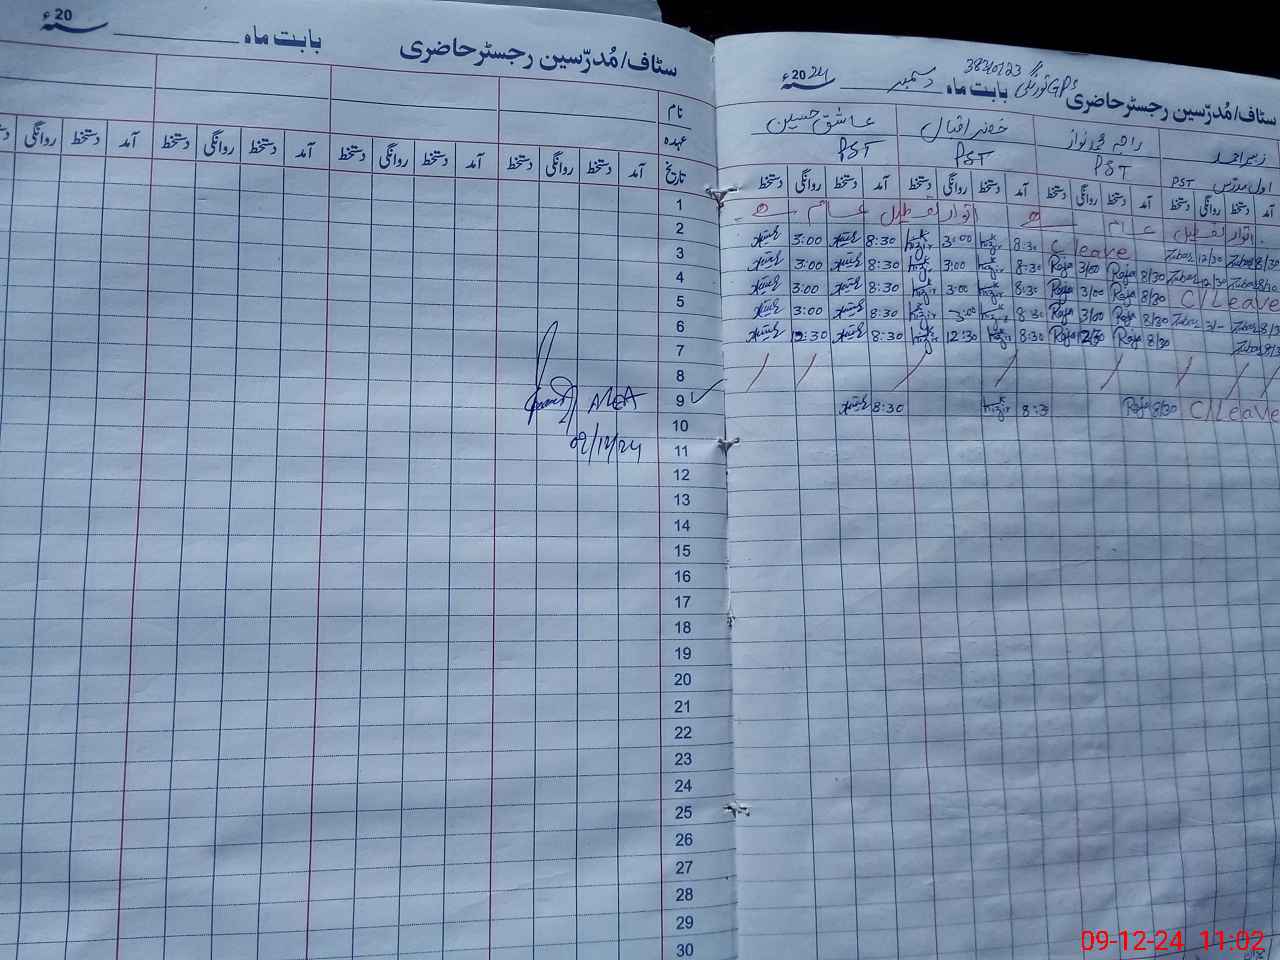 سٹاف/مُدرّسین رجسٹر حاضری بابت ماہ سنہ 20ء
نام
عہدہ
تاریخ آمد دستخط روانگی دستخط آمد دستخط روانگی دستخط آمد دستخط روانگی دستخط آمد دستخط روانگی دستخط
1
2
3
4
5
6
7
8
9 AEA
10
11 09/12/24
12
13
14
15
16
17
18
19
20
21
22
23
24
25
26
27
28
29
30
سٹاف/مُدرّسین رجسٹر حاضری GPS بابت ماہ دسمبر سنہ 2024ء
زبیر احمد راجہ محمد نواز خضر اقبال عاشق حسین
اول مدرس PST PST PST PST
آمد دستخط روانگی دستخط آمد دستخط روانگی دستخط آمد دستخط روانگی دستخط آمد دستخط روانگی دستخط
اتوار تعطیل عام ہے اتوار تعطیل عام ہے
8/30 Zubair 12/30 Zubair C leave 8:30 Khizir 3:00 Khizir 8:30 3:00
8/30 Zubair 12/30 Zubair 8/30 Raja 3/00 Raja 8:30 Khizir 3:00 Khizir 8:30 3:00
C/Leave 8/30 Raja 3/00 Raja 8:30 Khizir 3:00 Khizir 8:30 3:00
8/30 Zubair 3/- Zubair 8/30 Raja 3/00 Raja 8:30 Khizir 3:00 Khizir 8:30 3:00
8/30 Zubair 8/30 Raja 12/30 Raja 8:30 Khizir 12:30 Khizir 8:30 12:30
C/Leave 8/30 Raja 8:30 Khizir 8:30
09-12-24 11:02